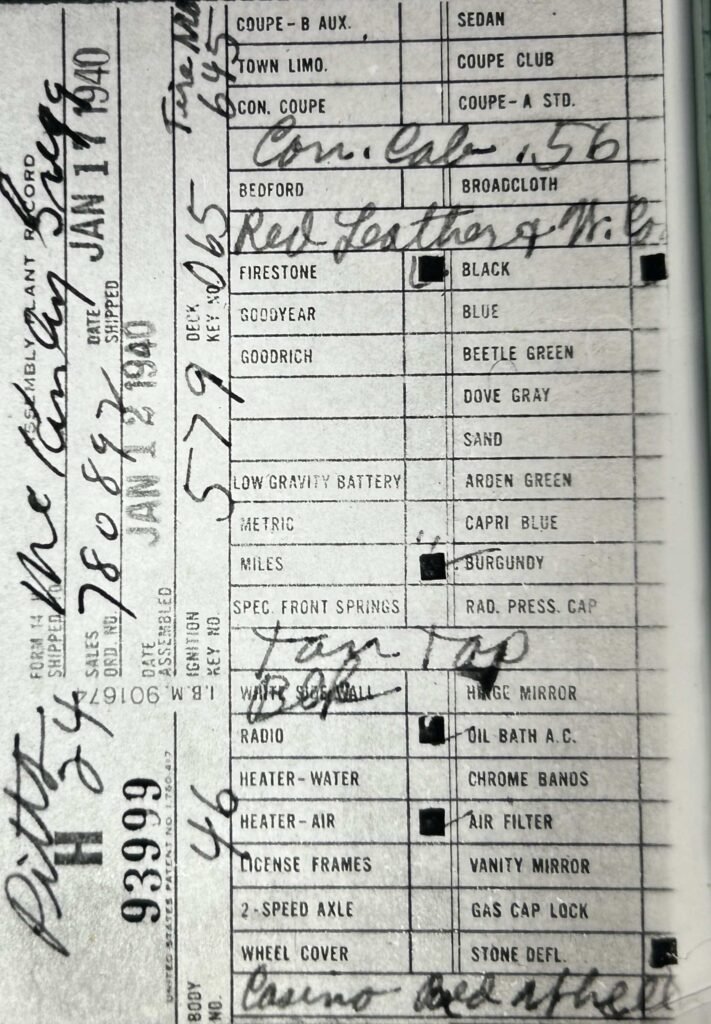 FORM 14
ASSEMBLY PLANT RECORD
SHIPPED TO
SALES ORD. NO. 780892
DATE SHIPPED JAN 17 1940
DATE ASSEMBLED JAN 12 1940
I.B.M. 901674
IGNITION KEY NO. 579
DECK KEY NO. 065
645
Pitts
H 24
93999
UNITED STATES PATENT NO. 1780-417
BODY NO. 46
COUPE-B AUX. SEDAN
TOWN LIMO. COUPE CLUB
CON. COUPE COUPE-A STD.
Con. Cab .56
BEDFORD BROADCLOTH
Red Leather & W. Co
FIRESTONE BLACK
GOODYEAR BLUE
GOODRICH BEETLE GREEN
DOVE GRAY
SAND
LOW GRAVITY BATTERY ARDEN GREEN
METRIC CAPRI BLUE
MILES BURGUNDY
SPEC. FRONT SPRINGS RAD. PRESS. CAP
Tan Top
Blk
WHITE SIDE WALL HINGE MIRROR
RADIO OIL BATH A.C.
HEATER-WATER CHROME BANDS
HEATER-AIR AIR FILTER
LICENSE FRAMES VANITY MIRROR
2-SPEED AXLE GAS CAP LOCK
WHEEL COVER STONE DEFL.
Casino Red